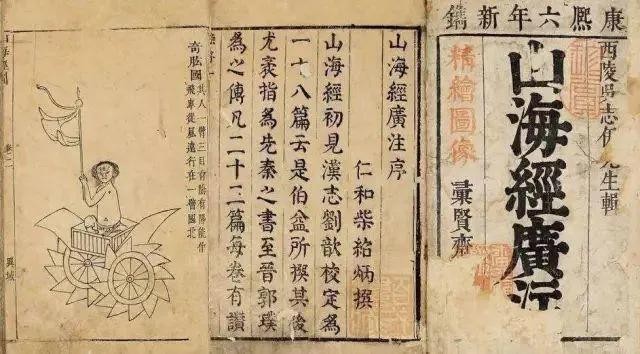 康熙六年新鐫
西陵吳志伊先生輯
山海經廣注
精繪圖像
彙賢齋
山海經廣注序
仁和柴紹炳撰
山海經初見漢志劉歆校定為
一十八篇云是伯益所撰其後
尤袤指為先秦之書至晉郭璞
為之傳凡二十三篇每卷有讚
奇肱國
其人一臂三目有陰有陽能作
飛車從風遠行在一臂國北
異域